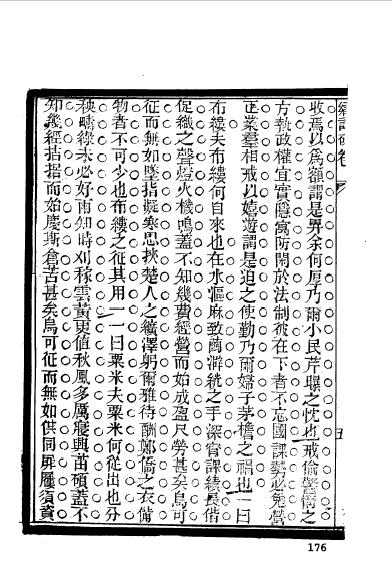 收焉以為額謂是畀余何厚乃爾小民芹曝之忱也戒偷警惰之
方執政權宜實隱寓防閑於法制彼在下者不忘國課勢必勉營
正業羣相戒以嬉遊謂是迫之使勤乃爾婦子茅檐之福也一曰
布縷夫布縷何自來也在水漚麻致之手深宵課績長偕
促織之聲燈火機鳴蓋不知幾費經營而始成盈尺勞甚矣烏可
征而無如墜指凝寒思挾楚人之纊澤躬爾雅待酬鄭僑之衣備
物者不可少也布縷之征其用一一曰粟米夫粟米何從出也分
秧疇綠未必好雨知時刈稼雲黃更值秋風多厲寢興苗碩蓋不
知幾經拮据而始慶斯倉苦甚矣烏可征而無如供同屝屨須資
176